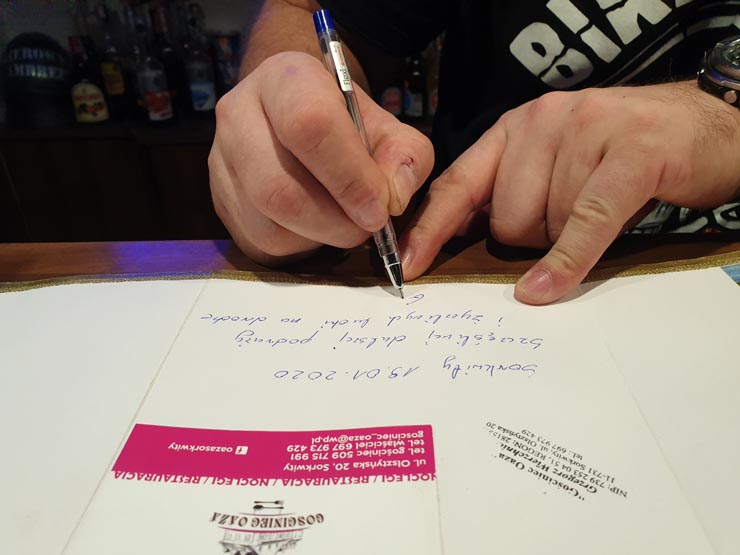 Sorkwity 19.01.2020
szczęśliwej dalszej podróży
i życzliwych ludzi na drodze
G
GOŚCINIEC OAZA
NOCLEGI / RESTAURACJA / NOCLEGI / RESTAURACJA
ul. Olsztyńska 20, Sorkwity
tel. gościniec 509 715 991
tel. właściciel 697 973 429
gosciniec_oaza@wp.pl
oazasorkwity
"Gościniec Oaza"
Grzegorz
NIP: 739 253 04 51, REGON:
11-731 Sorkwity, ul. Olsztyńska 20
tel.: 697 973 429